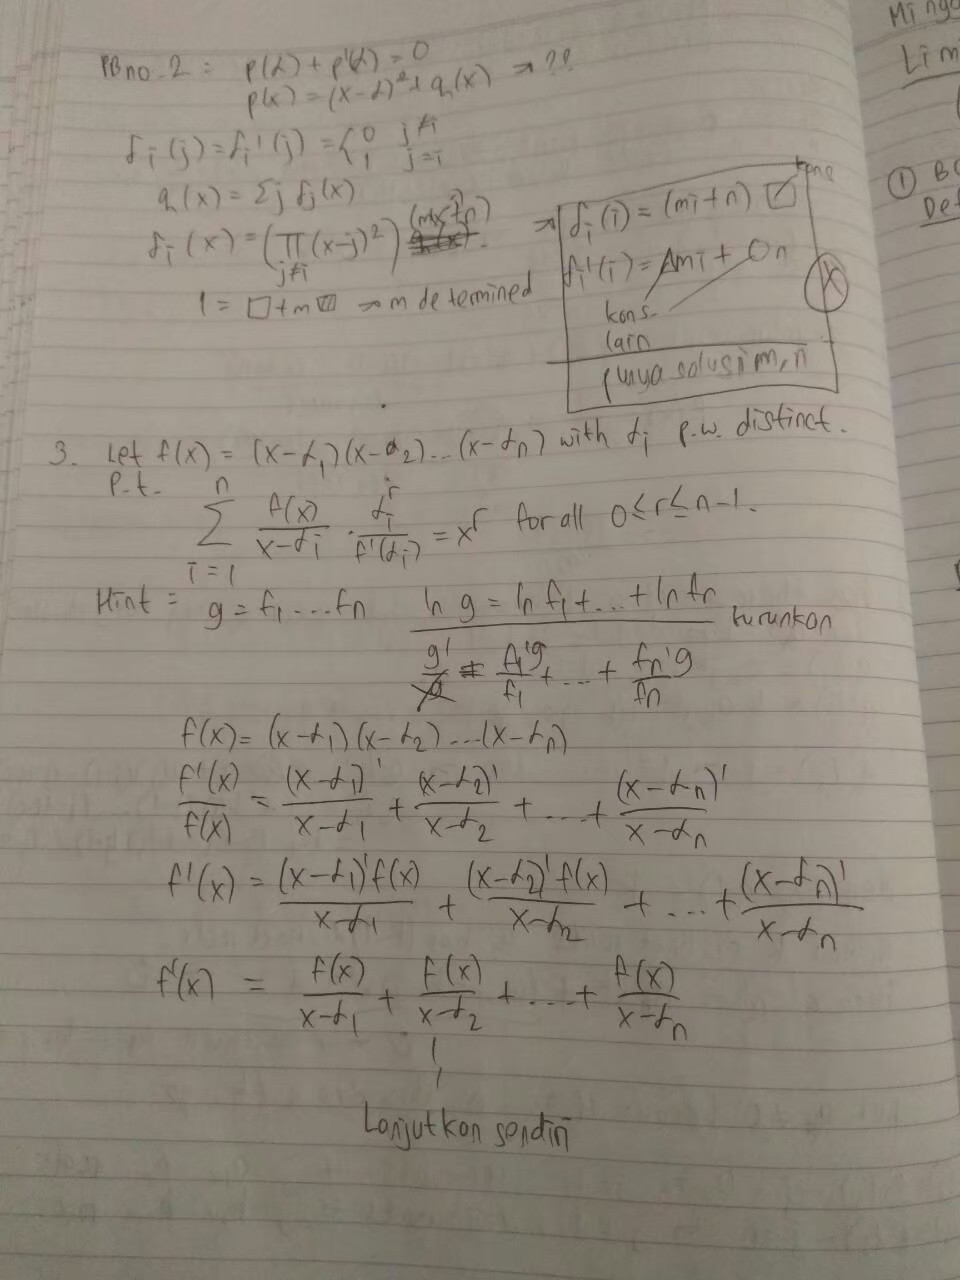 PB no. 2 : p(α) + p'(α) = 0
p(x) = (x-α)² + q(x) → ??
fᵢ(j) = fᵢ'(j) = { 0 j≠i
1 j=i
q(x) = Σj fⱼ(x)
fᵢ(x) = (∏ (x-j)²) (mx+n)
j≠i
1 = □ + m ▨ → m determined
→ fᵢ(i) = (mi+n) □ kons
fᵢ'(i) = Δmi + On
kons
lain
punya solusi m,n
(X)
3. Let f(x) = (x-α₁)(x-α₂)...(x-αₙ) with αᵢ p.w. distinct.
P.t. n
Σ f(x)/(x-αᵢ) · αᵢʳ/f'(αᵢ) = xʳ for all 0≤r≤n-1.
i=1
Hint = g = f₁....fₙ ln g = ln f₁+...+ln fₙ turunkan
g'/g = f₁'g/f₁ + ... + fₙ'g/fₙ
f(x) = (x-α₁)(x-α₂)....(x-αₙ)
f'(x)/f(x) = (x-α₁)'/(x-α₁) + (x-α₂)'/(x-α₂) + ... + (x-αₙ)'/(x-αₙ)
f'(x) = (x-α₁)'f(x)/(x-α₁) + (x-α₂)'f(x)/(x-α₂) + ... + (x-αₙ)'/(x-αₙ)
f'(x) = f(x)/(x-α₁) + f(x)/(x-α₂) + ... + f(x)/(x-αₙ)
Lanjutkan sendiri
Lim
①
Def